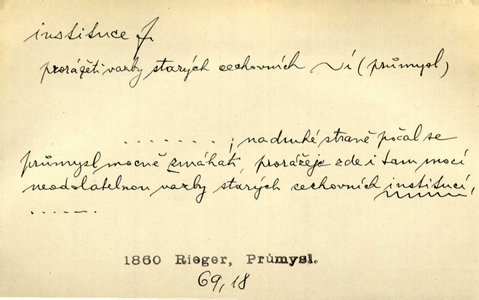 instituce f.
prorážeti vazby starých cechovních ~í (průmysl)
. . . . . . . . ; na druhé straně počal se
průmysl mocně zmáhati, prorážeje zde i tam mocí
neodolatelnou vazby starých cechovních institucí,
. . . . . .
1860 Rieger, Průmysl.
69,18